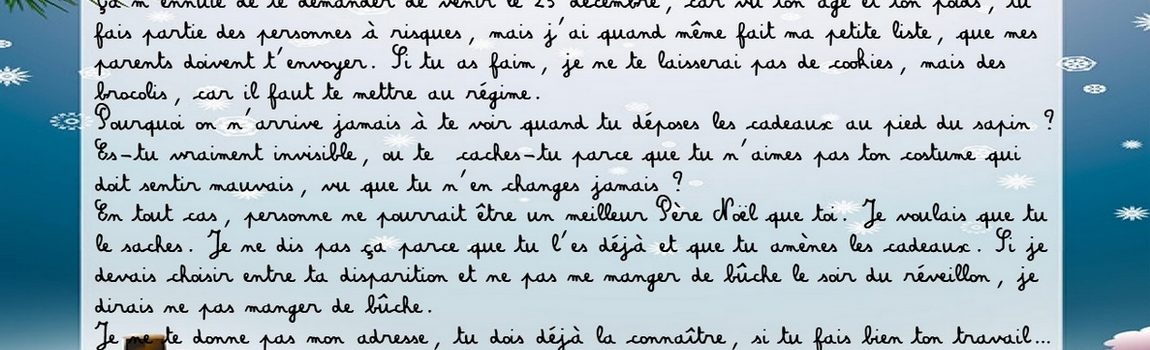 ça m'ennuie de te demander de venir le 25 décembre, car vu ton âge et ton poids, tu
fais partie des personnes à risques, mais j'ai quand même fait ma petite liste, que mes
parents doivent t'envoyer. Si tu as faim, je ne te laisserai pas de cookies, mais des
brocolis, car il faut te mettre au régime.
Pourquoi on n'arrive jamais à te voir quand tu déposes les cadeaux au pied du sapin ?
Es-tu vraiment invisible, ou te caches-tu parce que tu n'aimes pas ton costume qui
doit sentir mauvais, vu que tu n'en changes jamais ?
En tout cas, personne ne pourrait être un meilleur Père Noël que toi. Je voulais que tu
le saches. Je ne dis pas ça parce que tu l'es déjà et que tu amènes les cadeaux. Si je
devais choisir entre ta disparition et ne pas me manger de bûche le soir du réveillon, je
dirais ne pas manger de bûche.
Je ne te donne pas mon adresse, tu dois déjà la connaître, si tu fais bien ton travail...